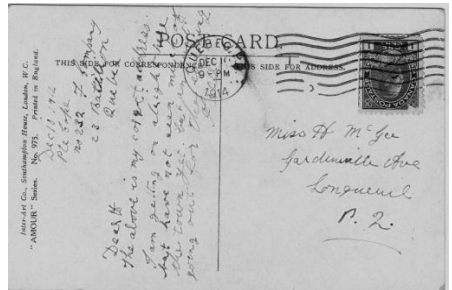 POST CARD
THIS SIDE FOR CORRESPONDENCE
THIS SIDE FOR ADDRESS.
QUEBEC
DEC 1
9 - PM
1914
CANADA
Inter-Art Co., Southampton House, London, W.C.
"AMOUR" Series. No. 973. Printed in England.
Dec 18 1914
Pte
no 282 F Company
22 Battalion
Quebec
Dear H
The above is my correct address.
I am getting on alright here
but have not seen much of
the town yet but
going out for
Miss H McGee
Gardenville Ave
Longueuil
P. Q.